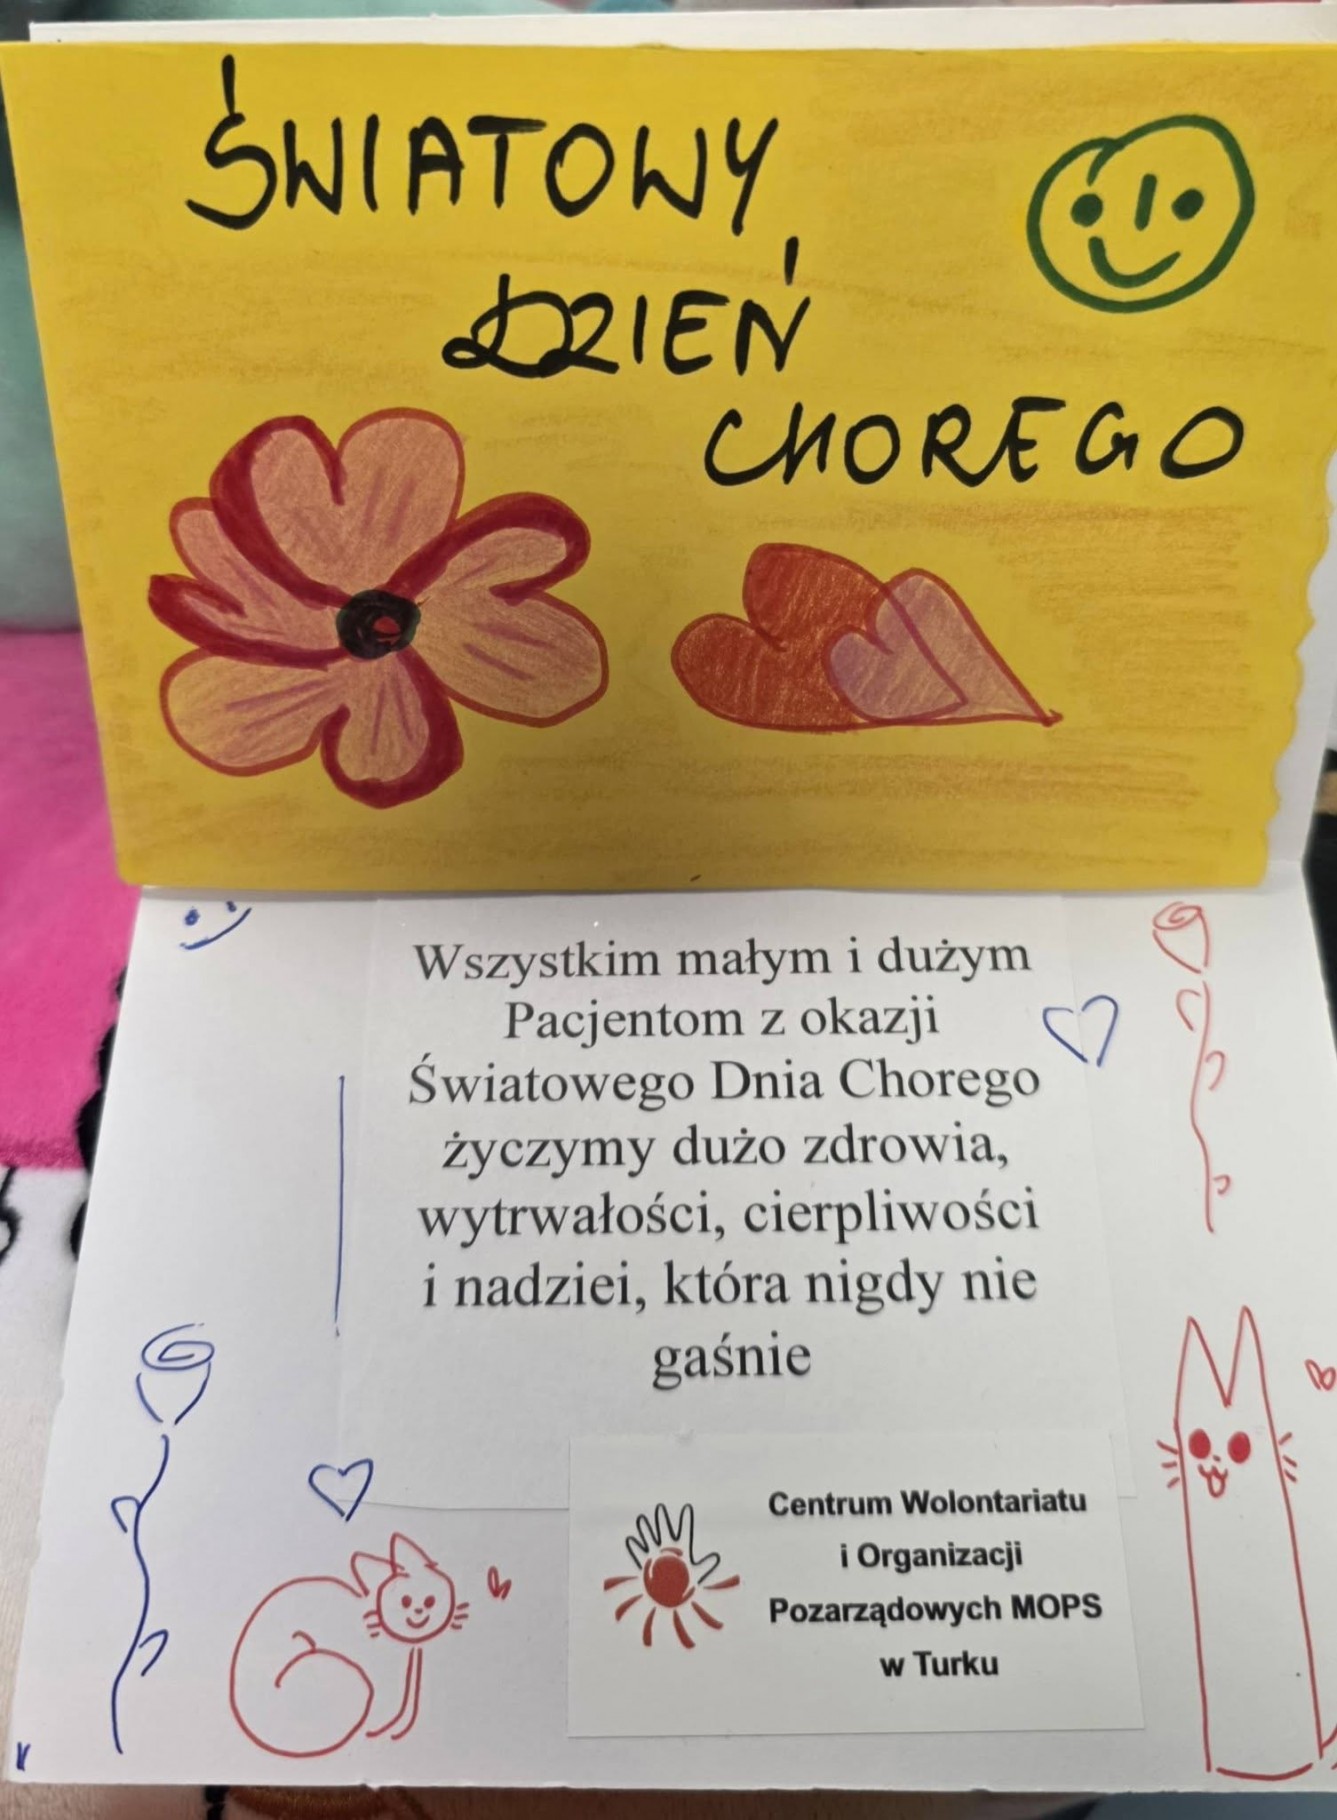 ŚWIATOWY
DZIEŃ
CHOREGO
Wszystkim małym i dużym
Pacjentom z okazji
Światowego Dnia Chorego
życzymy dużo zdrowia,
wytrwałości, cierpliwości
i nadziei, która nigdy nie
gaśnie
Centrum Wolontariatu
i Organizacji
Pozarządowych MOPS
w Turku